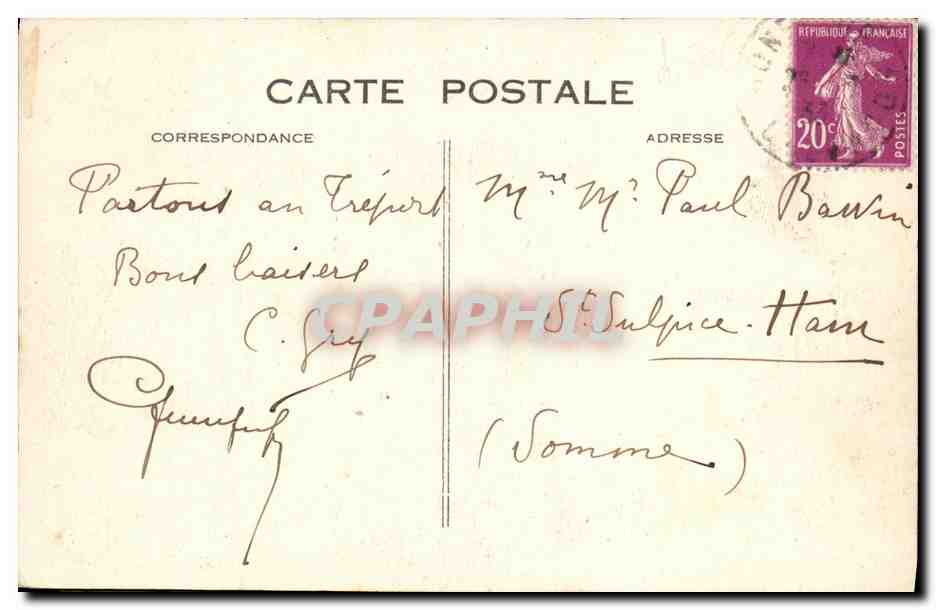 CARTE POSTALE
CORRESPONDANCE
ADRESSE
RÉPUBLIQUE FRANÇAISE
20c
POSTES
Partons au Tréport
Bons baisers
C. Gry
Mme Mr Paul Bawin
St. Sulpice. Ham
(Somme)
CPAPHIL